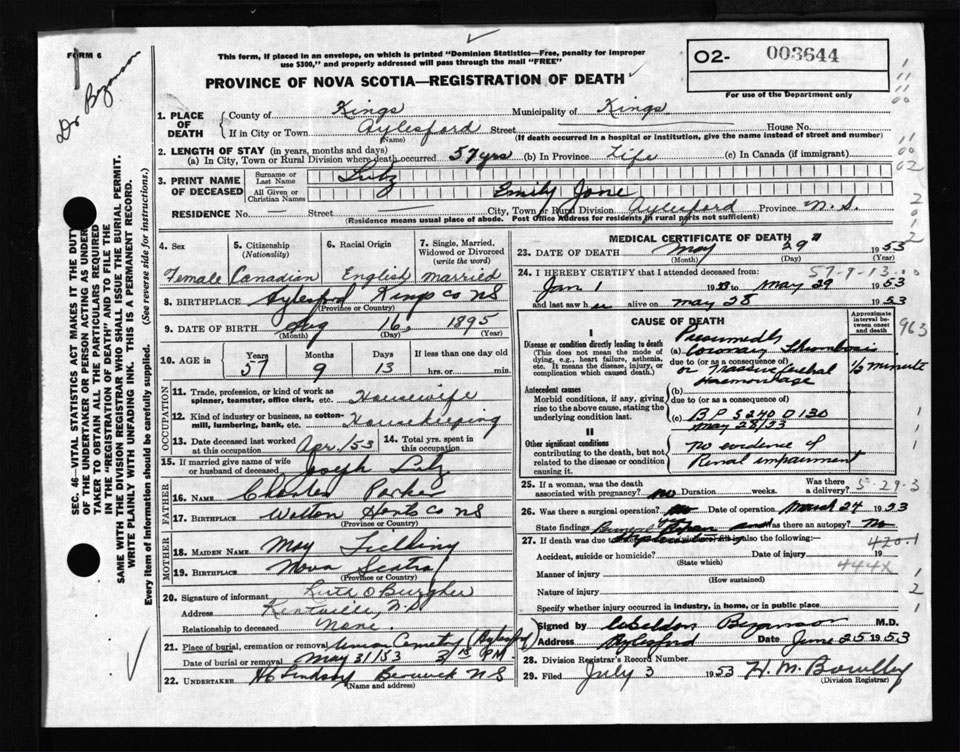 FORM 6
Dr Bezanson
This form, if placed in an envelope, on which is printed "Dominion Statistics—Free, penalty for improper
use $300," and properly addressed will pass through the mail "FREE"
PROVINCE OF NOVA SCOTIA—REGISTRATION OF DEATH
02- 003644
For use of the Department only
1. PLACE OF DEATH { County of Kings Municipality of Kings
If in City or Town Aylesford Street House No.
(Name) (If death occurred in a hospital or institution, give the name instead of street and number)
2. LENGTH OF STAY (in years, months and days)
(a) In City, Town or Rural Division where death occurred 57 yrs (b) In Province Life (c) In Canada (if immigrant)
3. PRINT NAME OF DECEASED { Surname or Last Name Lutz
All Given or Christian Names Emily Jane
RESIDENCE No. — Street City, Town or Rural Division Aylesford Province N.S.
(Residence means usual place of abode. Post Office Address for residents in rural parts not sufficient)
4. Sex 5. Citizenship (Nationality) 6. Racial Origin 7. Single, Married, Widowed or Divorced (write the word)
Female Canadian English Married
8. BIRTHPLACE Aylesford Kings Co NS
(Province or Country)
9. DATE OF BIRTH Aug 16 1895
(Month) (Day) (Year)
10. AGE in Years Months Days If less than one day old
57 9 13 hrs. or min.
OCCUPATION
11. Trade, profession, or kind of work as spinner, teamster, office clerk, etc. Housewife
12. Kind of industry or business, as cotton-mill, lumbering, bank, etc. Housekeeping
13. Date deceased last worked at this occupation Apr/53 14. Total yrs. spent in this occupation
15. If married give name of wife or husband of deceased Joseph Lutz
FATHER
16. NAME Charles Parker
17. BIRTHPLACE Walton Hants Co NS
(Province or Country)
MOTHER
18. MAIDEN NAME May
19. BIRTHPLACE Nova Scotia
(Province or Country)
20. Signature of informant Ruth O Burgher
Address Kentville, N.S.
Relationship to deceased None
21. Place of burial, cremation or removal Union Cemetery (Aylesford)
Date of burial or removal May 31/53 3 PM
22. UNDERTAKER HC Lindsay Berwick NS
(Name and address)
MEDICAL CERTIFICATE OF DEATH
23. DATE OF DEATH May 29" 1953
(Month) (Day) (Year)
24. I HEREBY CERTIFY that I attended deceased from: 57-9-13
Jan 1 1953 to May 29 1953
and last saw her alive on May 28 1953
CAUSE OF DEATH
Approximate interval between onset and death
963
I
Disease or condition directly leading to death
(This does not mean the mode of dying, e.g., heart failure, asthenia, etc. It means the disease, injury, or complication which caused death.)
Presumably
(a) Coronary Thrombosis
due to (or as a consequence of)
or Massive Cerebral
Haemorrhage
minute
Antecedent causes
Morbid conditions, if any, giving rise to the above cause, stating the underlying condition last.
(b)
due to (or as a consequence of)
(c) B P S 240 D 130
May 28/53
II
Other significant conditions
contributing to the death, but not related to the disease or condition causing it.
No evidence of
Renal impairment
25. If a woman, was the death associated with pregnancy? no Duration weeks. Was there a delivery? 5-29-3
26. Was there a surgical operation? Date of operation March 24 1953
State findings Was there an autopsy? No
27. If death was due to external causes (violence) fill in also the following:— 420.1
Accident, suicide or homicide? Date of injury 19
(State which) 444X
Manner of injury
(How sustained)
Nature of injury
Specify whether injury occurred in industry, in home, or in public place
Signed by Weldon Bezanson M.D.
Address Aylesford Date June 25 1953
28. Division Registrar's Record Number
29. Filed July 3 1953
(Division Registrar)
SEC. 46—VITAL STATISTICS ACT MAKES IT THE DUTY
OF THE UNDERTAKER OR PERSON ACTING AS UNDER-
TAKER TO OBTAIN ALL THE PARTICULARS REQUIRED
IN THE "REGISTRATION OF DEATH" AND TO FILE THE
SAME WITH THE DIVISION REGISTRAR WHO SHALL ISSUE THE BURIAL PERMIT.
WRITE PLAINLY WITH UNFADING INK. THIS IS A PERMANENT RECORD.
Every item of information should be carefully supplied. (See reverse side for instructions.)